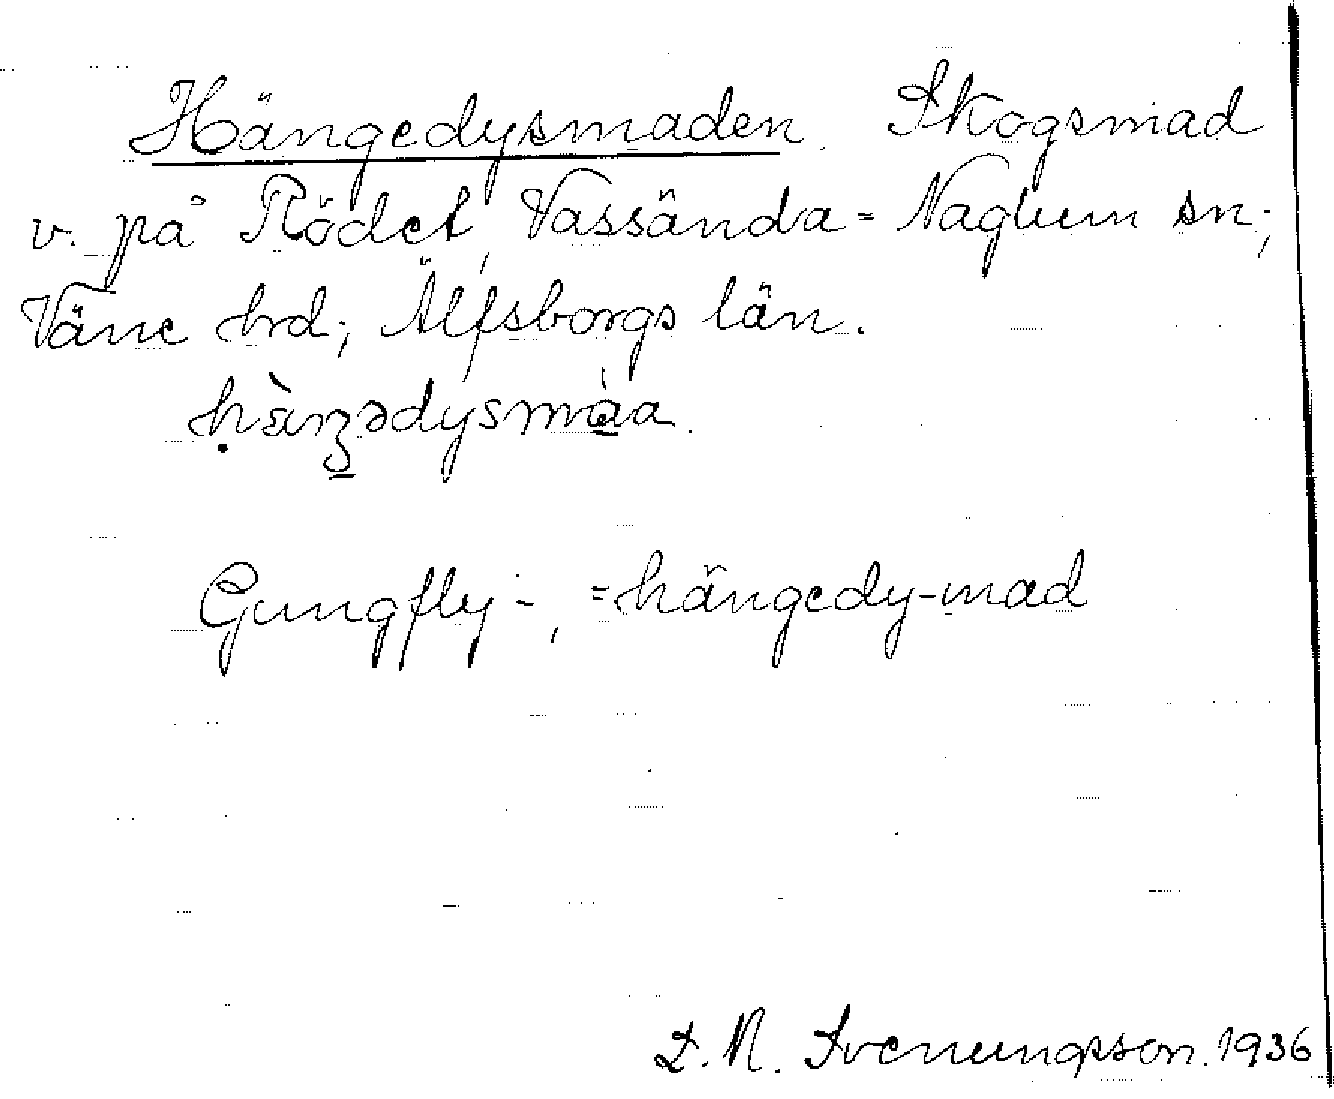 Hängedysmaden. Skogsmad
v. på Rödet, Vassända-Naglum sn;
Väne hrd; Älfsborgs län.
Gungfly-, =hängedy-mad
Svenungsson. 1936